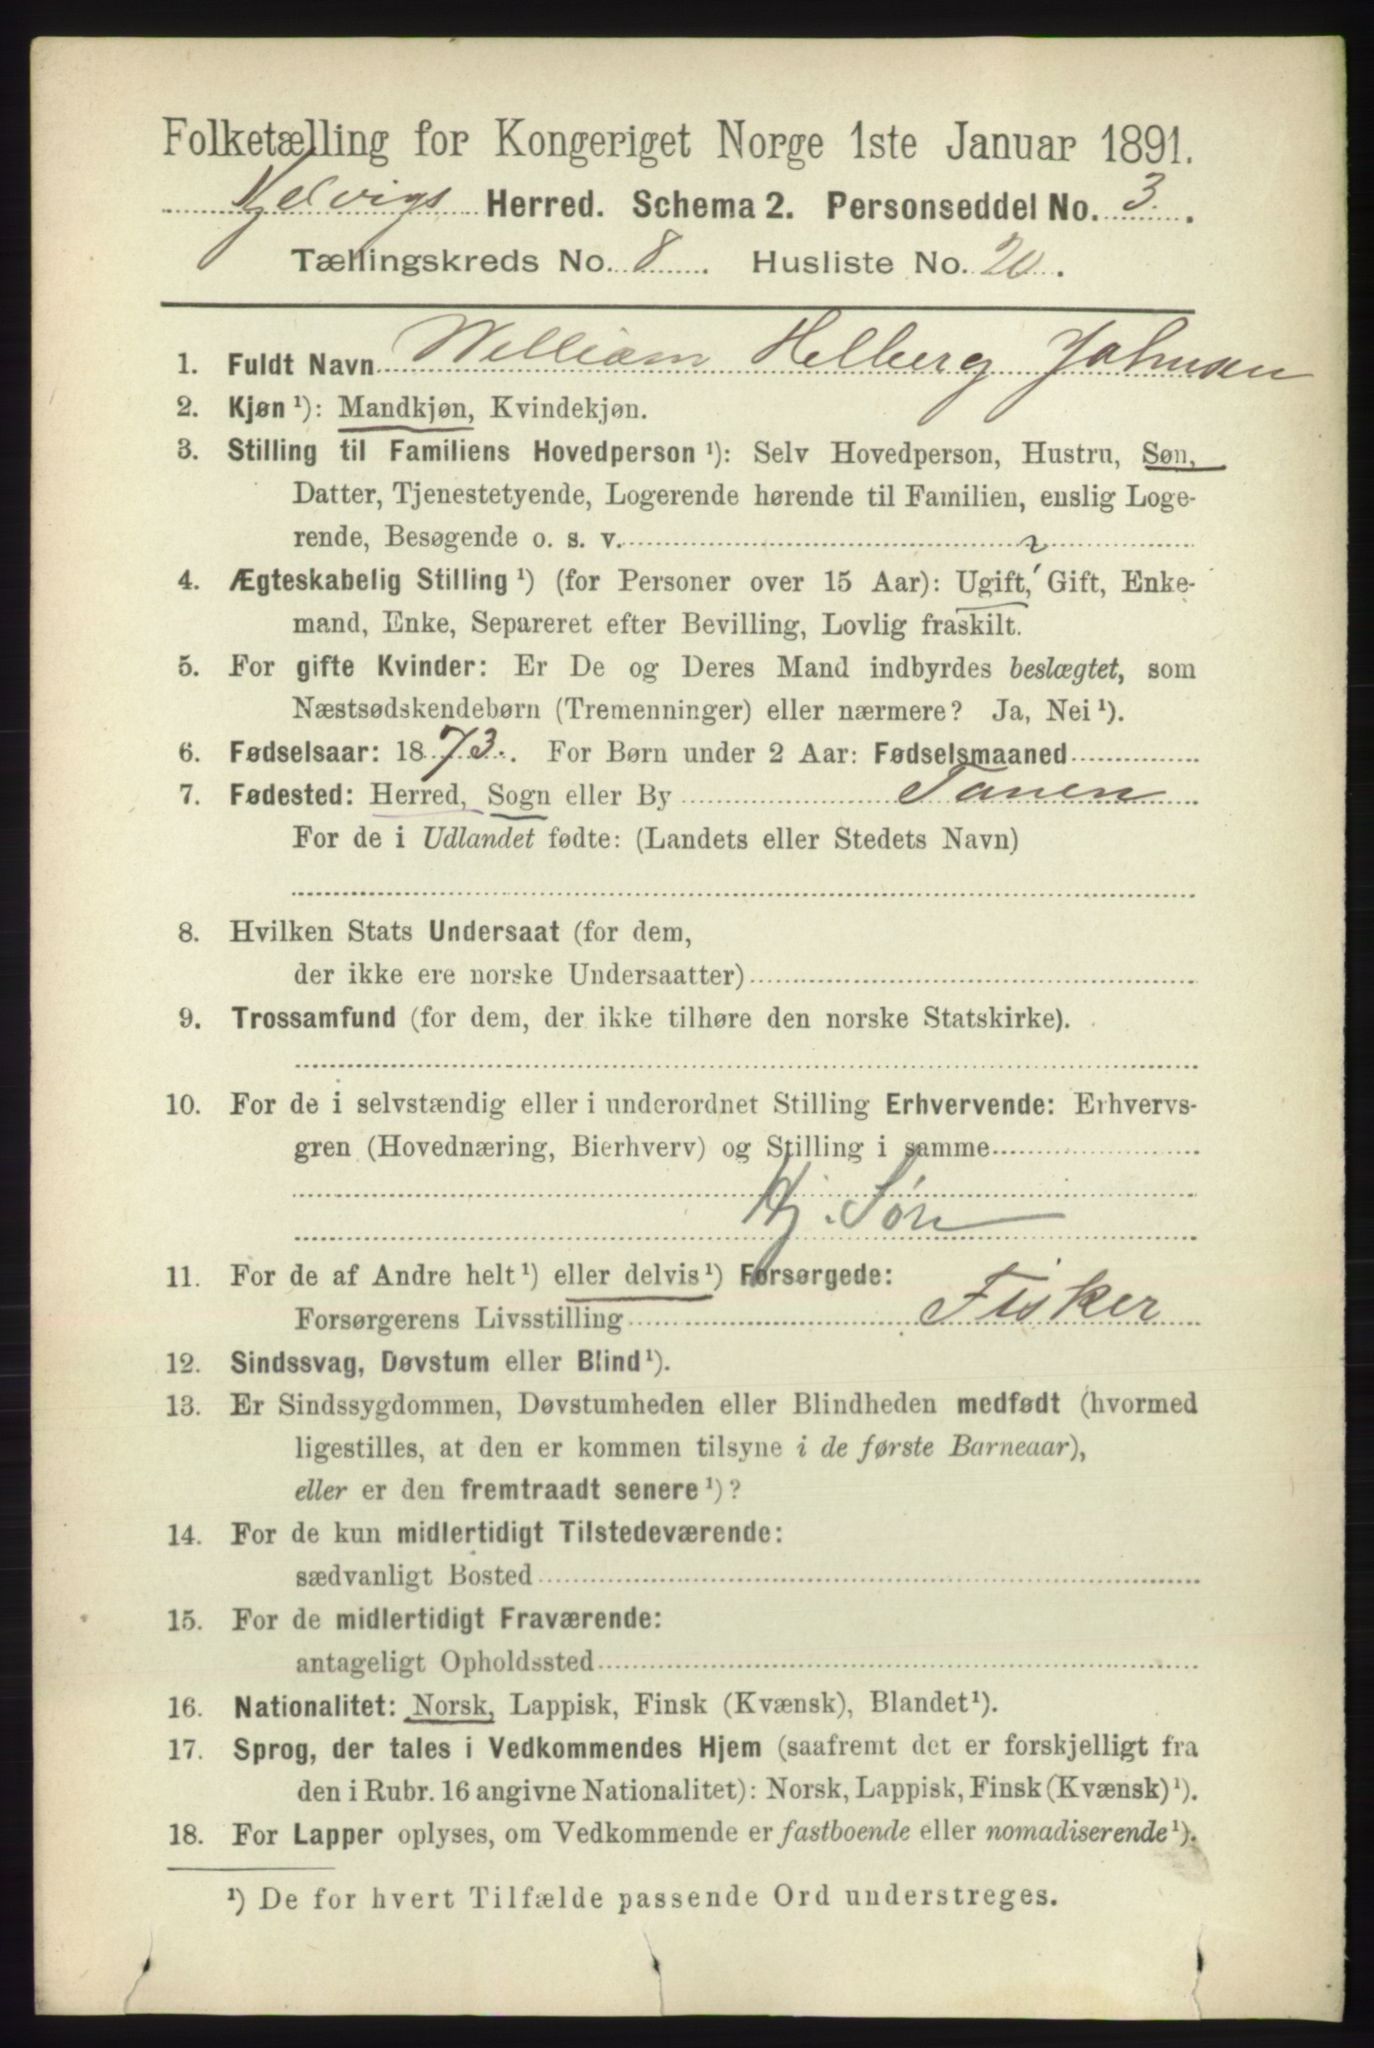 Folketælling for Kongeriget Norge 1ste Januar 1891.
Kjelvigs Herred. Schema 2. Personseddel No. 3.
Tællingskreds No. 8. Husliste No. 20.
1. Fuldt Navn William Helberg Johnsen
2. Kjøn ¹): Mandkjøn, Kvindekjøn.
3. Stilling til Familiens Hovedperson ¹): Selv Hovedperson, Hustru, Søn,
Datter, Tjenestetyende, Logerende hørende til Familien, enslig Loge-
rende, Besøgende o. s. v.
4. Ægteskabelig Stilling ¹) (for Personer over 15 Aar): Ugift, Gift, Enke-
mand, Enke, Separeret efter Bevilling, Lovlig fraskilt.
5. For gifte Kvinder: Er De og Deres Mand indbyrdes beslægtet, som
Næstsødskendebørn (Tremenninger) eller nærmere? Ja, Nei ¹).
6. Fødselsaar: 1873. For Børn under 2 Aar: Fødselsmaaned
7. Fødested: Herred, Sogn eller By Tanen
For de i Udlandet fødte: (Landets eller Stedets Navn)
8. Hvilken Stats Undersaat (for dem,
der ikke ere norske Undersaatter)
9. Trossamfund (for dem, der ikke tilhøre den norske Statskirke).
10. For de i selvstændig eller i underordnet Stilling Erhvervende: Erhvervs-
gren (Hovednæring, Bierhverv) og Stilling i samme
Hj. Søn
11. For de af Andre helt ¹) eller delvis ¹) Forsørgede:
Forsørgerens Livsstilling Fisker
12. Sindssvag, Døvstum eller Blind ¹).
13. Er Sindssygdommen, Døvstumheden eller Blindheden medfødt (hvormed
ligestilles, at den er kommen tilsyne i de første Barneaar),
eller er den fremtraadt senere ¹)?
14. For de kun midlertidigt Tilstedeværende:
sædvanligt Bosted
15. For de midlertidigt Fraværende:
antageligt Opholdssted
16. Nationalitet: Norsk, Lappisk, Finsk (Kvænsk), Blandet ¹).
17. Sprog, der tales i Vedkommendes Hjem (saafremt det er forskjelligt fra
den i Rubr. 16 angivne Nationalitet): Norsk, Lappisk, Finsk (Kvænsk) ¹).
18. For Lapper oplyses, om Vedkommende er fastboende eller nomadiserende ¹).
¹) De for hvert Tilfælde passende Ord understreges.